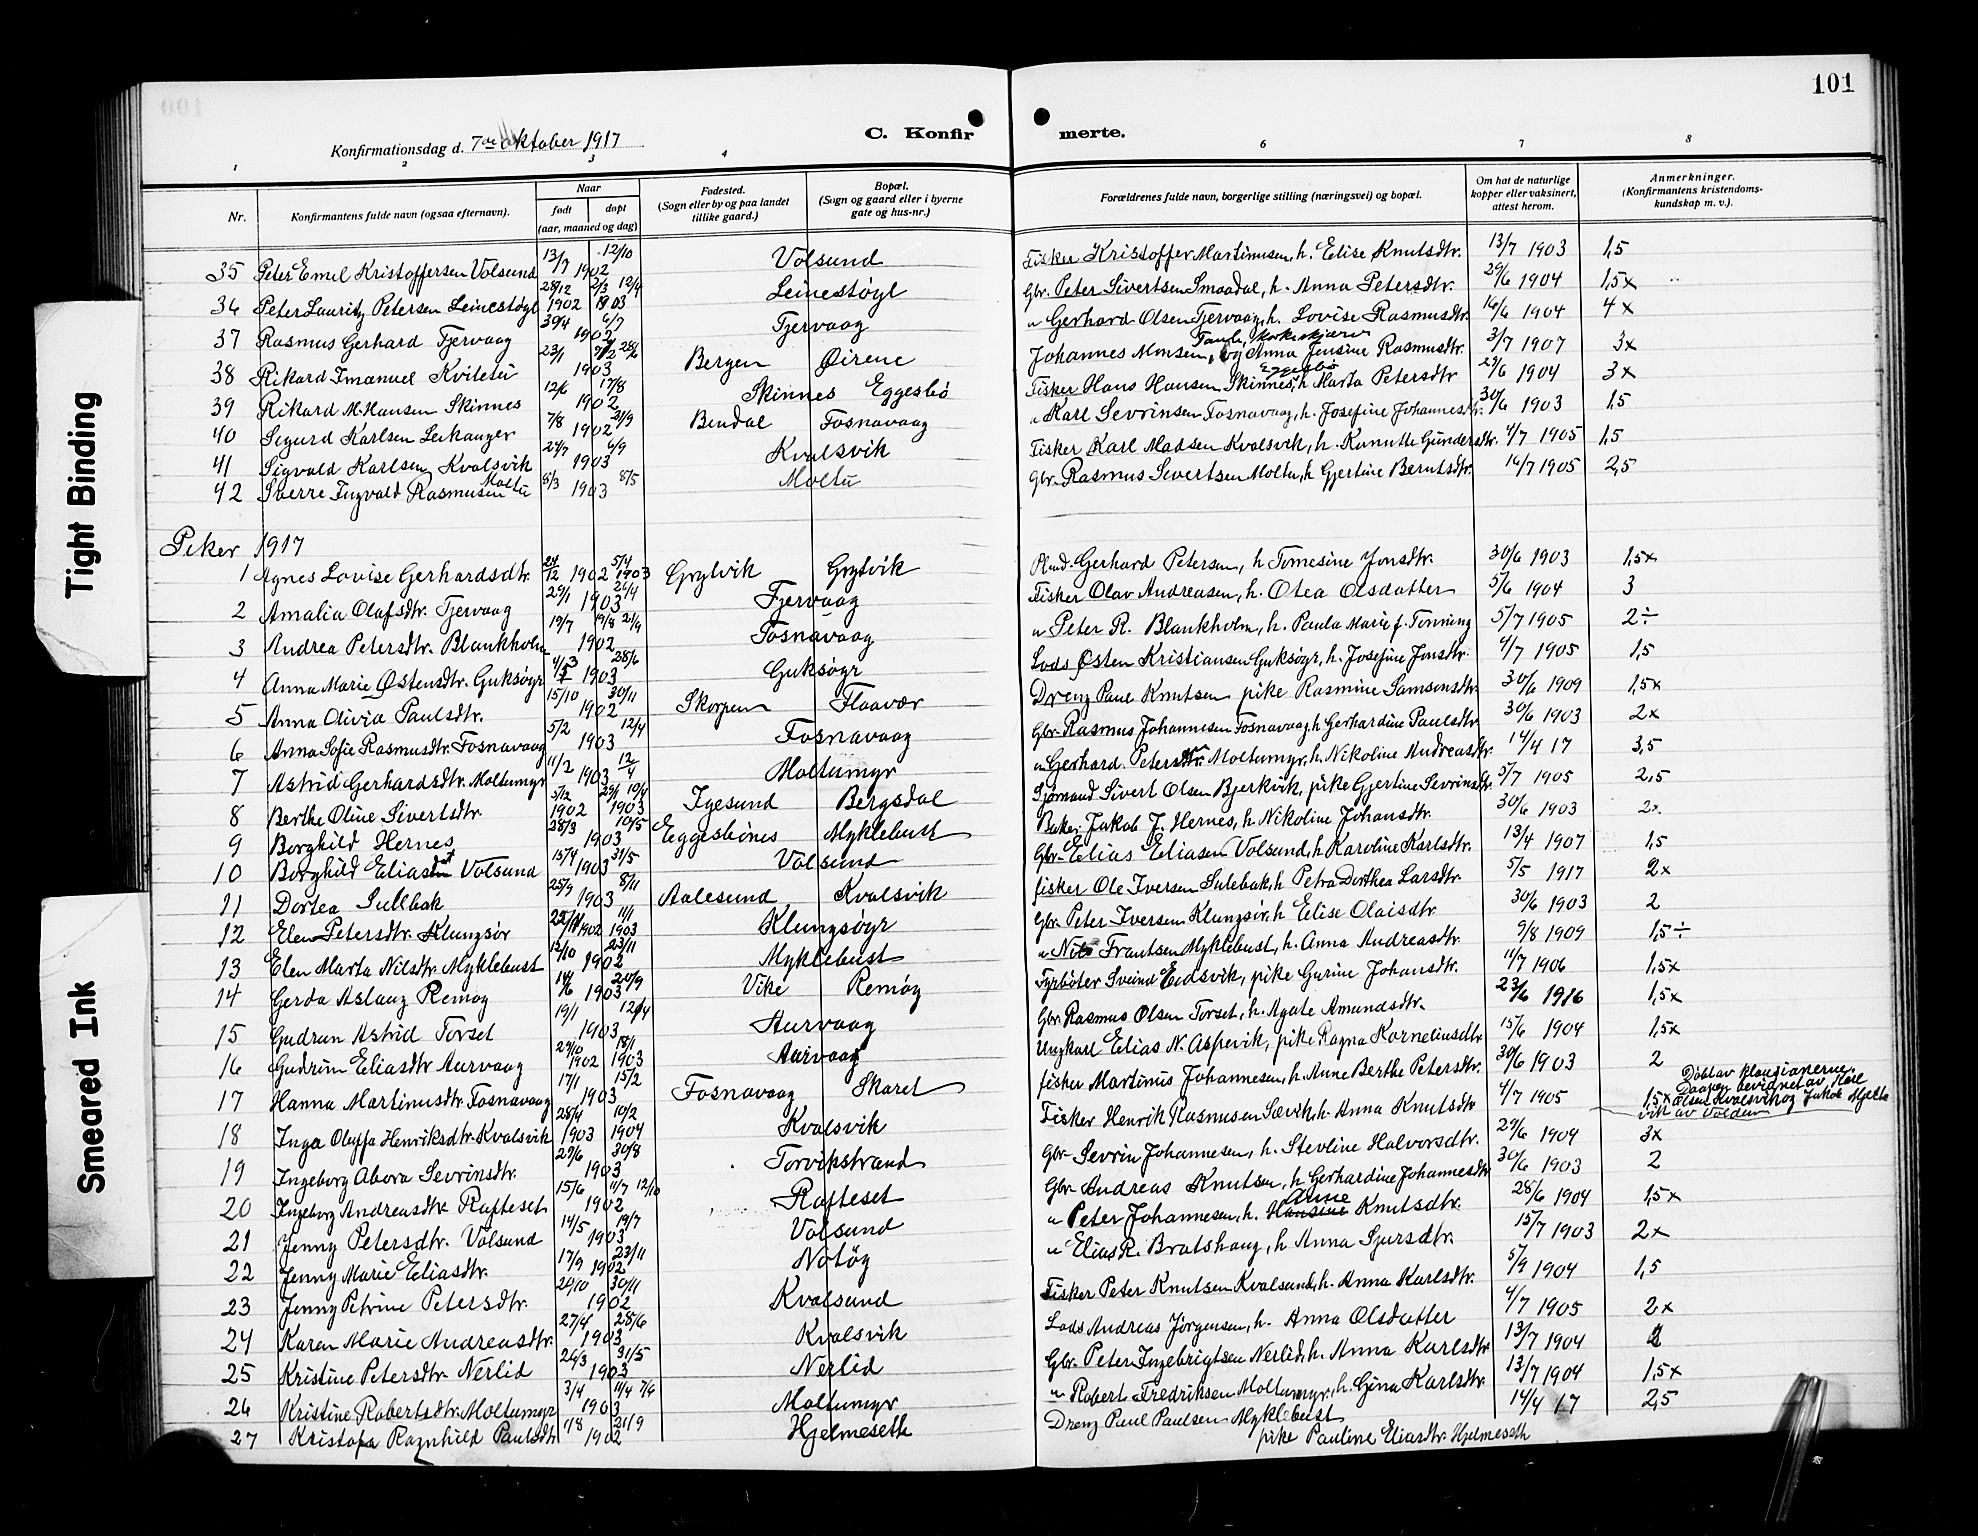 101
Konfirmationsdag d. 7de Oktober 1917
C. Konfirmerte.
1 2 3 4 6 7 8
Nr. Konfirmantens fulde navn (ogsaa efternavn). Naar født døpt (aar, maaned og dag) Fødested. (Sogn eller by og paa landet tillike gaard.) Bopæl. (Sogn og gaard eller i byerne gate og hus-nr.) Forældrenes fulde navn, borgerlige stilling (næringsvei) og bopæl. Om hat de naturlige kopper eller vaksinert, attest herom. Anmerkninger. (Konfirmantens kristendoms-kundskap m. v.).
35 Peter Emil Kristoffersen Volsund 13/7 12/10 1902 Volsund Fisker Kristoffer Martinusen, h. Elise Knutsdtr. 13/7 1903 1,5
36 Peter Lauritz Petersen Leinestøyl 28/12 1902 2/3 12/4 1903 Leinestøyl Gbr. Peter Sivertsen Smaadal, h. Anna Petersdtr. 29/6 1904 1,5x
37 Rasmus Gerhard Tjervaag 30/4 6/7 1902 Tjervaag " Gerhard Olsen Tjervaag, h. Lovise Rasmusdtr. 16/6 1904 4x
38 Rikard Imanuel Kviteti 23/1 28/6 1903 Bergen Øirene Johannes Monsen, og Anna Jensine Rasmusdtr. 3/7 1907 3x
39 Rikard M. Hansen Skinnes 12/6 17/8 1902 Skinnes Eggesbø Fisker Hans Hansen Skinnes, h Marta Petersdtr 29/6 1904 3x
40 Sigurd Karlsen Leikanger 7/8 31/9 1902 Bindal Fosnavaag " Karl Sevrinsen Fosnavaag, h. Josefine Johannesdtr. 30/6 1903 1,5
41 Sigvald Karlsen Kvalsvik 24/7 6/9 1903 Kvalsvik Fisker Karl Madsen Kvalsvik, h. Kanutte Gundersdtr. 4/7 1905 1,5
42 Sverre Ingvald Rasmusen Moltu 8/3 8/5 1903 Moltu Gbr. Rasmus Severtsen Moltu, h Gjertine Berntsdtr. 16/7 1905 2,5
Piker 1917
1 Agnes Lovise Gerhardsdtr. 24/12 1902 5/4 1903 Grytvik Grytvik Gerhard Petersen, h Tomesine Jonsdtr. 30/6 1903 1,5x
2 Amalia Olafsdtr. Tjervaag 29/1 26/4 1903 Tjervaag Fisker Olav Andreasen, h. Otea Olsdatter 5/6 1904 3
3 Andrea Petersdtr. Blankholm 19/7 19/8 21/9 1902 Fosnavaag " Peter R. Blankholm, h. Paula Marie f. Tonning 5/7 1905 2÷
4 Anna Marie Østensdtr. Guksøyr 28/6 1903 Guksøyr Lods Østen Kristiansen Guksøyr, h. Josefine Jonsdtr. 4/7 1905 1,5
5 Anna Olivia Paulsdtr. 15/10 30/11 1902 Skorpen Flaavær Dreng Paul Knutsen pike Rasmine Samsonsdtr. 30/6 1909 1,5x
6 Anna Sofie Rasmusdtr. Fosnavaag 5/2 12/4 1903 Fosnavaag Gbr. Rasmus Johannesen Fosnavaag, h Gerhardine Paulsdtr 30/6 1903 2x
7 Astrid Gerhardsdtr. Moltumyr 11/2 12/4 1903 Moltumyr " Gerhard Petersen Moltumyr, h. Nikoline Andreasdtr. 14/4 17 3,5
8 Berthe Oline Sivertsdtr 5/12 1902 29/1 10/4 1903 Igesund Bergsdal Sjømand Sivert Olsen Bjerkvik, pike Gjertine Sevrinsdtr. 5/7 1905 2,5
9 Borghild Hernes 28/3 10/5 1903 Eggesbønes Myklebust Baker Jakob J. Hernes, h. Nikoline Johansdtr. 30/6 1903 2x
10 Borghild Eliasdtr Volsund 15/4 31/5 1903 Volsund Gbr. Elias Eliasen Volsund, h Karoline Karlsdtr. 13/4 1907 1,5
11 Dortea Sulebak 25/9 8/11 1903 Aalesund Kvalsvik fisker Ole Iversen Sulebak, h Petra Dorthea Larsdtr. 5/5 1917 2x
12 Elen Petersdtr. Klungsør 22/11 1902 11/1 1903 Klungsøyr Gbr. Peter Iversen Klungsør, h Elise Olaisdtr. 30/6 1903 2
13 Elen Marta Nilsdtr. Myklebust 12/10 23/11 1902 Myklebust " Nils Frantsen Myklebust, h. Anna Andreasdtr. 9/8 1909 1,5÷
14 Gerda Aslaug Remøy 20/9 1903 Vike Remøy Fyrbøter Sveind Eidsvik, pike Gurine Johansdtr. 11/7 1906 1,5x
15 Gudrun Astrid Torset 19/1 12/4 1903 Aurvaag Gbr. Rasmus Olsen Torset, h. Agate Amundsdtr. 23/6 1916 1,5x
16 Gudrun Eliasdtr Aurvaag 29/10 1902 18/1 1903 Aurvaag Ungkarl Elias N. Aspevik, pike Ragna Korneliusdtr 15/6 1904 1,5x
17 Hanna Martinusdtr. Fosnavaag 17/1 15/2 1903 Fosnavaag Skaret fisker Martinus Johannesen, h. Anne Berthe Petersdtr. 30/6 1903 2
18 Inga Oluffa Henriksdtr. Kvalsvik 28/4 1903 10/2 1904 Kvalsvik Fisker Henrik Rasmusen Sævik, h. Anna Knutsdtr 4/7 1905 1,5x Døbt av Daapen bevidnet av Karl Olsen Kvalsvik og Jakob Mjelte vik av Volden
19 Ingeborg Abora Sevrinsdtr. 29/6 30/8 1903 Torvikstrand Gbr. Sevrin Johannesen, h. Stevline Halvorsdtr. 29/6 1904 3x
20 Ingeborg Andreasdtr. Rafteset 15/6 11/7 12/10 1902 Rafteset Gbr Andreas Knutsen, h. Gerhardine Johannesdtr 30/6 1903 2
21 Jenny Petersdtr. Volsund 14/5 19/7 1903 Volsund " Peter Johannesen, h. Hansine Anne Knutsdtr. 28/6 1904 1,5x
22 Jenny Marie Eliasdtr. 17/9 23/11 1902 Notøy " Elias R. Bratshaug, h Anna Sjursdtr. 15/7 1903 2x
23 Jenny Petrine Petersdtr. 20/10 30/11 1902 Kvalsund Fisker Peter Knutsen Kvalsund, h. Anna Karlsdtr. 5/9 1904 1,5
24 Karen Marie Andreasdtr. 27/4 28/6 1903 Kvalsvik Lods Andreas Jørgensen, h. Anna Olsdatter 4/7 1905 2x
25 Kristine Petersdtr. Nerlid 26/3 31/5 1903 Nerlid Gbr. Peter Ingebrigtsen Nerlid, h. Anna Karlsdtr 13/7 1904 2
26 Kristine Robertsdtr. Moltumyr 3/4 11/4 7/6 1903 Moltumyr " Robert Fredriksen Moltumyr, h. Gina Karlsdtr. 13/7 1904 1,5x
27 Kristofa Ragnhild Paulsdtr 1/8 21/9 1902 Hjelmeseth Dreng Paul Paulsen Myklebust 14/4 17 2,5
pike Pauline Eliasdtr. Hjelmeseth
Tight Binding
Smeared Ink